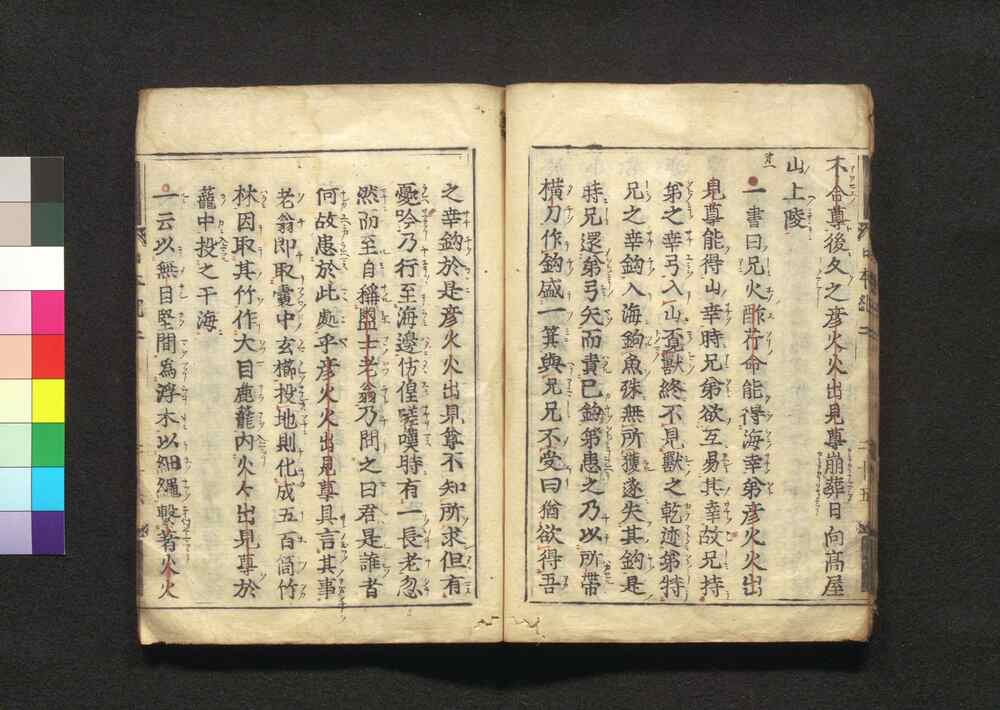 不合尊後久之彦火火出見尊崩葬日向高屋
山上陵
一書曰兄火酢芹命能得海幸弟彦火火出
見尊能得山幸時兄弟欲互易其幸故兄持
弟之幸弓入山覓獣終不見獣之乾迹弟特
兄之幸鈎入海鈎魚殊無所獲遂失其鈎是
時兄還弟弓矢而責已鈎弟患之乃以所帯
横刀作鈎盛一箕與兄兄不受曰猶欲得吾
之幸鈎於是彦火火出見尊不知所求但有
憂吟乃行至海邊彷徨嗟嘆時有一長老忽
然而至自稱鹽土老翁乃問之曰君是誰者
何故患於此處乎彦火火出見尊具言其事
老翁即取嚢中玄櫛投地則化成五百箇竹
林因取其竹作大目麁籠内火々出見尊於
籠中投之于海
一云以無目堅間為浮木以細縄繋著火火